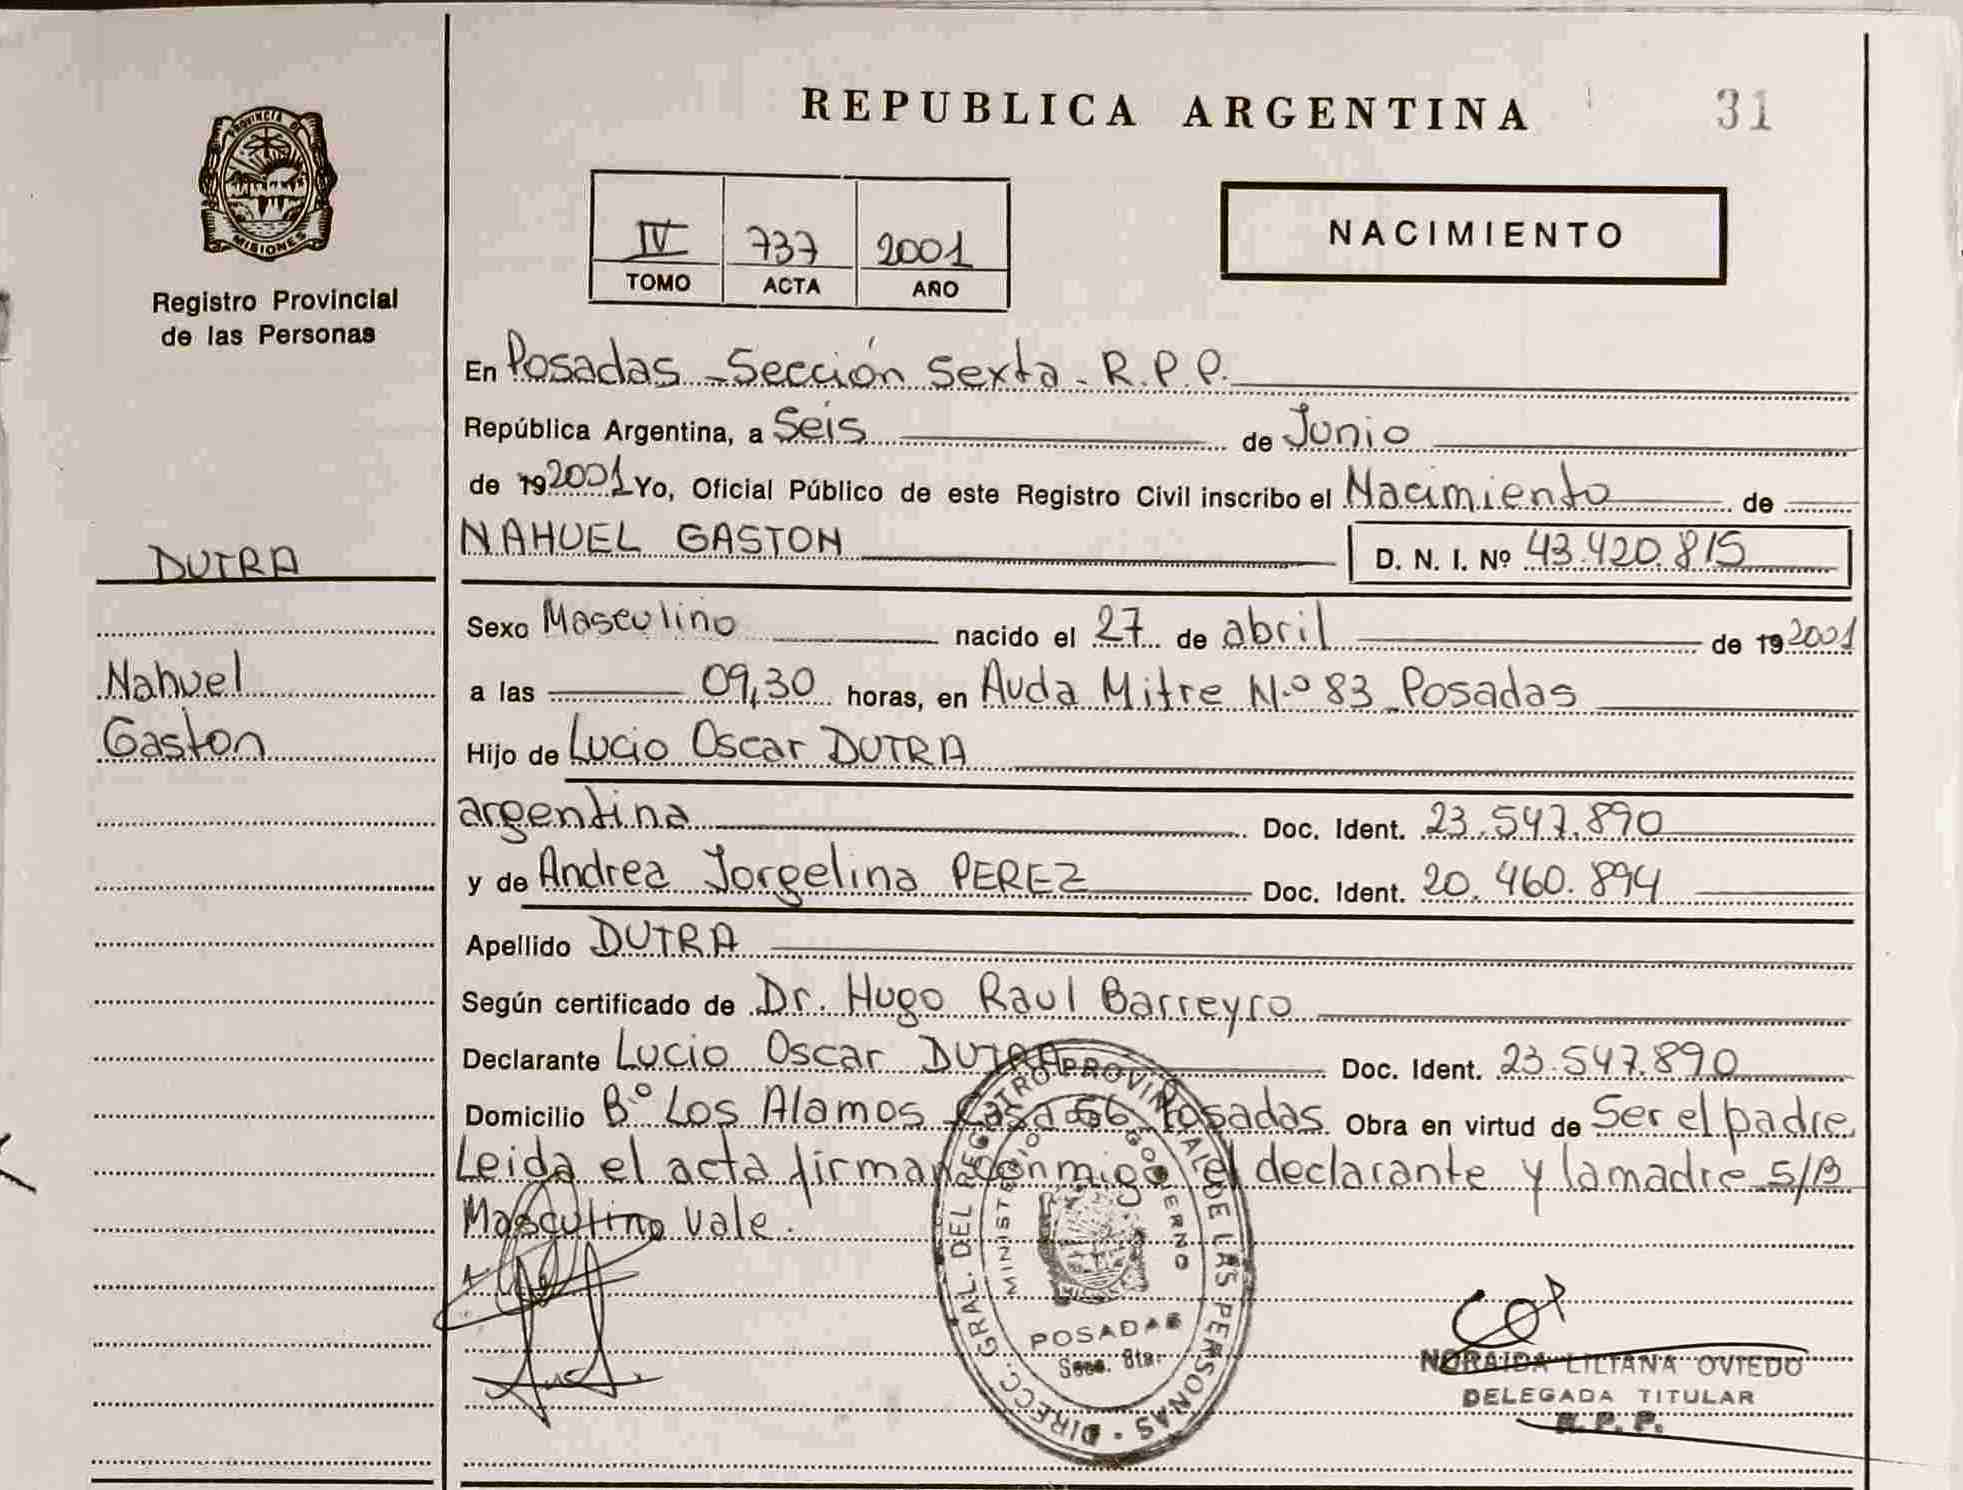 REPUBLICA ARGENTINA
31
PROVINCIA DE
MISIONES
Registro Provincial
de las Personas
IV 737 2001
TOMO ACTA AÑO
NACIMIENTO
En Posadas - Sección Sexta - R.P.P.
República Argentina, a Seis de Junio
de 192001 Yo, Oficial Público de este Registro Civil inscribo el Nacimiento de
DUTRA
NAHUEL GASTON D. N. I. Nº 43.420.815
Sexo Masculino nacido el 27 de abril de 192001
Nahuel
a las 09,30 horas, en Avda Mitre N.º 83 Posadas
Gaston
Hijo de Lucio Oscar DUTRA
argentina Doc. Ident. 23.547.890
y de Andrea Jorgelina PEREZ Doc. Ident. 20.460.894
Apellido DUTRA
Según certificado de Dr. Hugo Raul Barreyro
Declarante Lucio Oscar DUTRA Doc. Ident. 23.547.890
Domicilio B.º Los Alamos Casa 56 Posadas Obra en virtud de Ser el padre
Leida el acta firman conmigo el declarante y la madre S/B
Masculino vale.
DIRECC. GRAL. DEL REGISTRO PROVINCIAL DE LAS PERSONAS
MINISTERIO GOBIERNO
POSADAS
NORAIDA LILIANA OVIEDO
DELEGADA TITULAR
R. P. P.